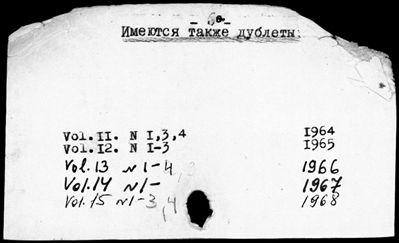 Имеются также дублеты:
Vol.II. N I,3,4 1964
Vol.I2. N I-3 1965
Vol.13 N1-4,3 1966
Vol.14 N1- 1967
Vol.15 N1-3,4 1968